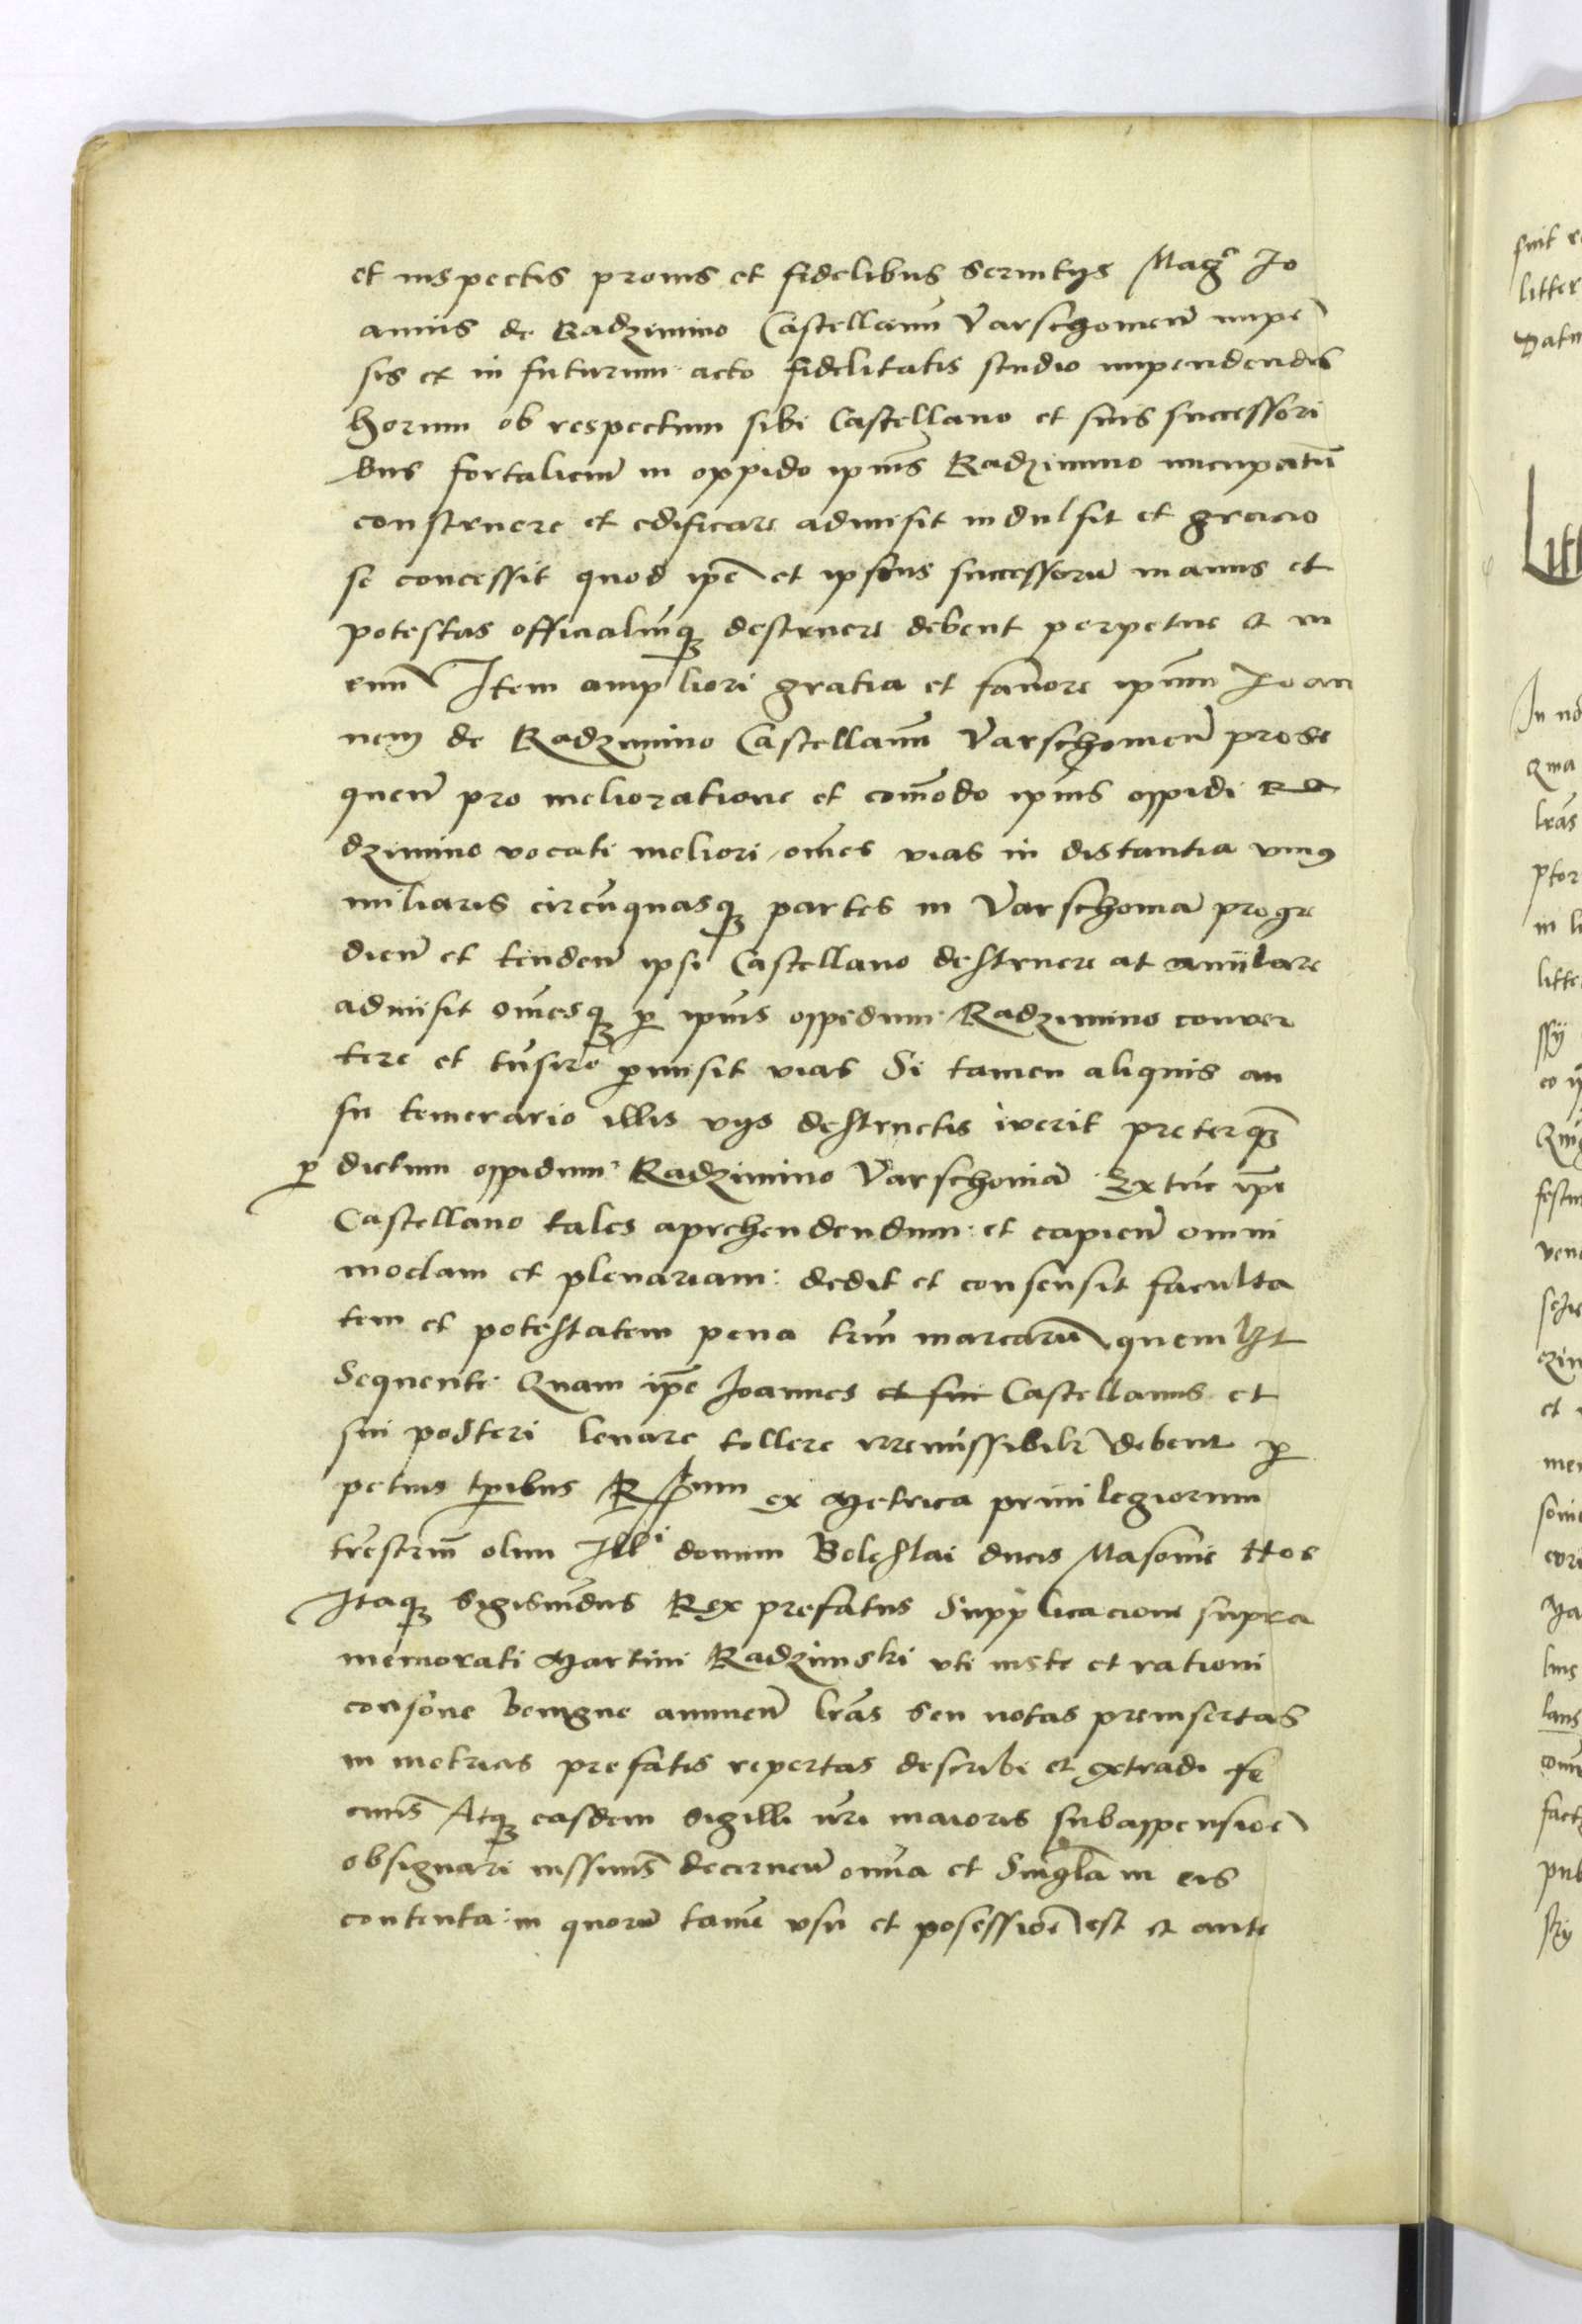 et inspectis provis et fidelibus servitijs Mag^ci Io
annis de Radzimino Castellanu Varschovien impē
sis et in futurum acto fidelitatis studio impendendis
horum ob respectum sibi Castellano et suis successori
bus fortaliciū in oppido ipius Radzimino nuncupatū
construere et edificare admisit indulsit et gracio
se concessit quod ipē et ipsius successorū manus et
potestas officialiūqȝ destruere debent perpetue et in
eum Item ampliori gratia et favore ipūm Joan
nem de Radzimino Castellanū Varschovien prose
quen pro melioratione et comōdo ipius oppidi Ra
dzimino vocati meliori omēs vias in distantia vniꝰ
miliaris circūquasqȝ partes in Varschoviā progre
dien et tenden ipsi Castellano destruere at anijlare
admisit omēsqȝ ꝑ ipius oppidum Radzimino conver
tere et trāsire ꝑmisit vias Si tamen aliquis au
su temerario illis vijs destructis iverit preterqȝ
ꝑ dictum oppidum Radzimino Varschoviā Extūc ipē
Castellano tales aprehendendum et capien omni
modam et plenariam dedit et consensit faculta
tem et potestatem pena triū marcarū quemlȝt
Sequente Quam ipē Joannes et sui Castellanus et
sui posteri levare tollere irremissibilr debent ꝑ
petuis tꝑibus Rsum ex Metrica privilegiorum
trēstriū olim Ill^i domini Boleslai ducis Masovie Nos
Itaqȝ Sigismūdus Rex prefatus Supplicacioni supra
memorati Martini Radziminski vti iuste et rationi
consone benigne annuen lrās seu notas preinsertas
in metricis prefatis repertas describi et extradi fe
cimꝰ Atqȝ easdem sigilli nri maioris subappensioē
obsignari iussimꝰ decernen omīa et Singlā in eis
contenta in quorū tamē vsu et posessioē est et ante